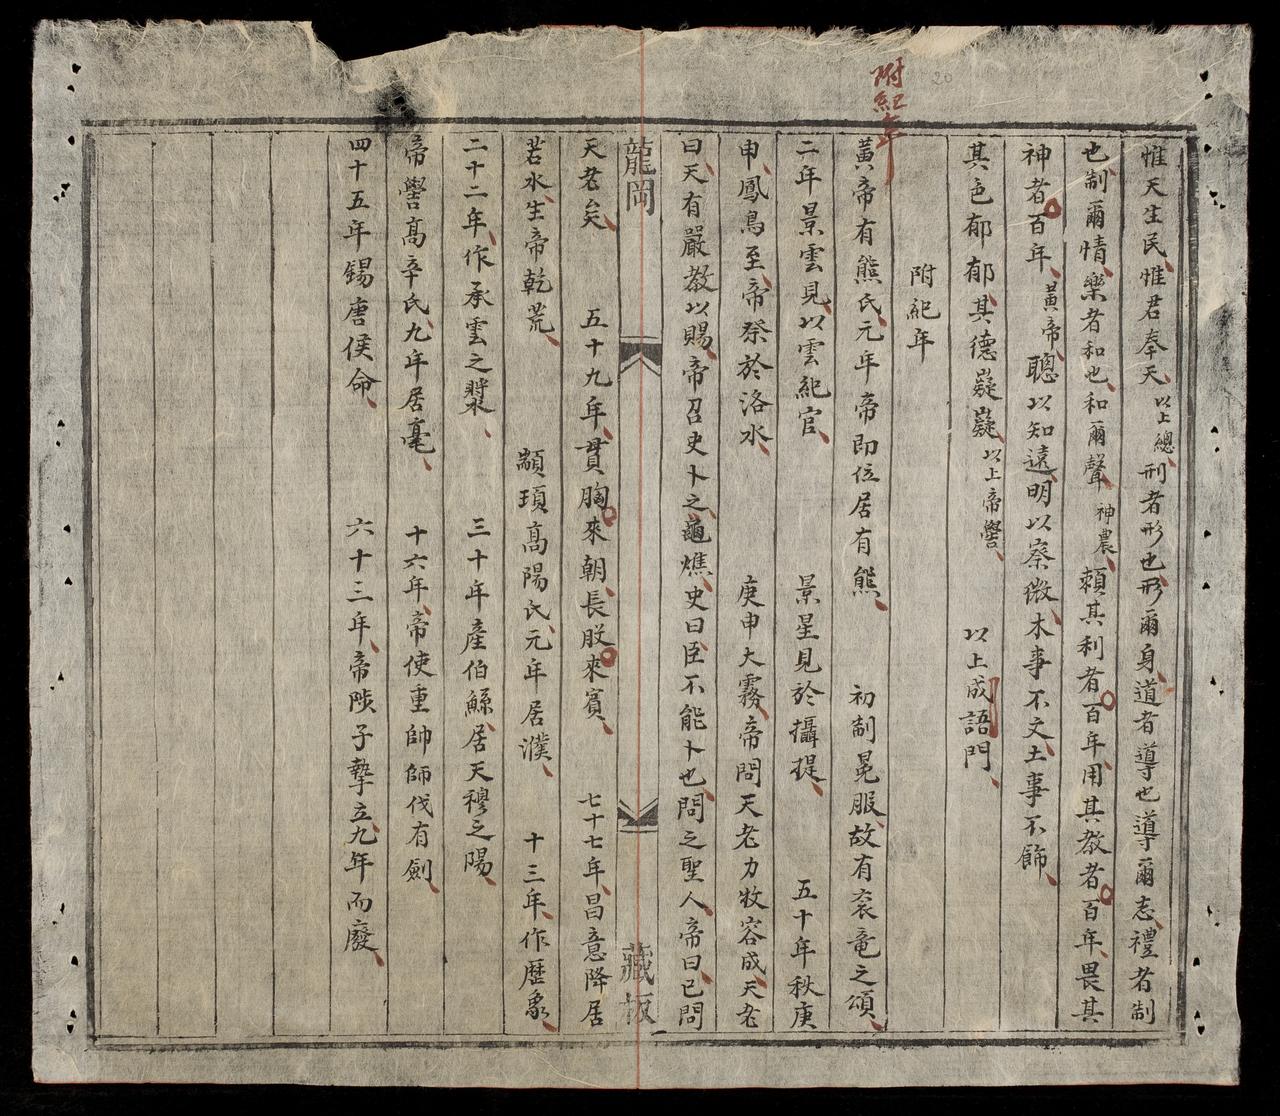 附紀年
20
惟天生民惟君奉天以上總刑者形也形爾身道者導也導爾志禮者制
也制爾情樂者和也和爾聲神農賴其利者百年用其教者百年畏其
神者百年黃帝聰以知遠明以察微木事不文土事不飾
其色郁郁其德嶷嶷以上帝嚳以上成語門
附紀年
黃帝有熊氏元年帝即位居有熊初制冕服故有袞竜之頌
二年景雲見以雲紀官景星見於攝提五十年秋庚
申鳳鳥至帝祭於洛水庚申大霧帝問天老力牧容成天老
曰天有嚴教以賜帝召史卜之龜燋史曰臣不能卜也問之聖人帝曰已問
龍岡藏板
天老矣五十九年貫胸來朝長股來賓七十七年昌意降居
若水生帝乾荒顓頊高陽氏元年居濮十三年作歷象
二十二年作承雲之樂三十年產伯鯀居天穆之陽
帝嚳高辛氏九年居亳十六年帝使重帥師伐有劍
四十五年錫唐侯命六十三年帝陟子摯立九年而廢